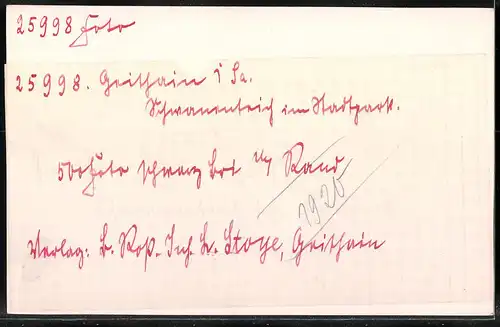 25998 Foto
25998. Geithain i Sa.
Schwanenteich im Stadtpark.
500 Foto schwarz Bri m/ Rand
1920
Verlag: L. Roß. Inh. L. Stoye, Geithain